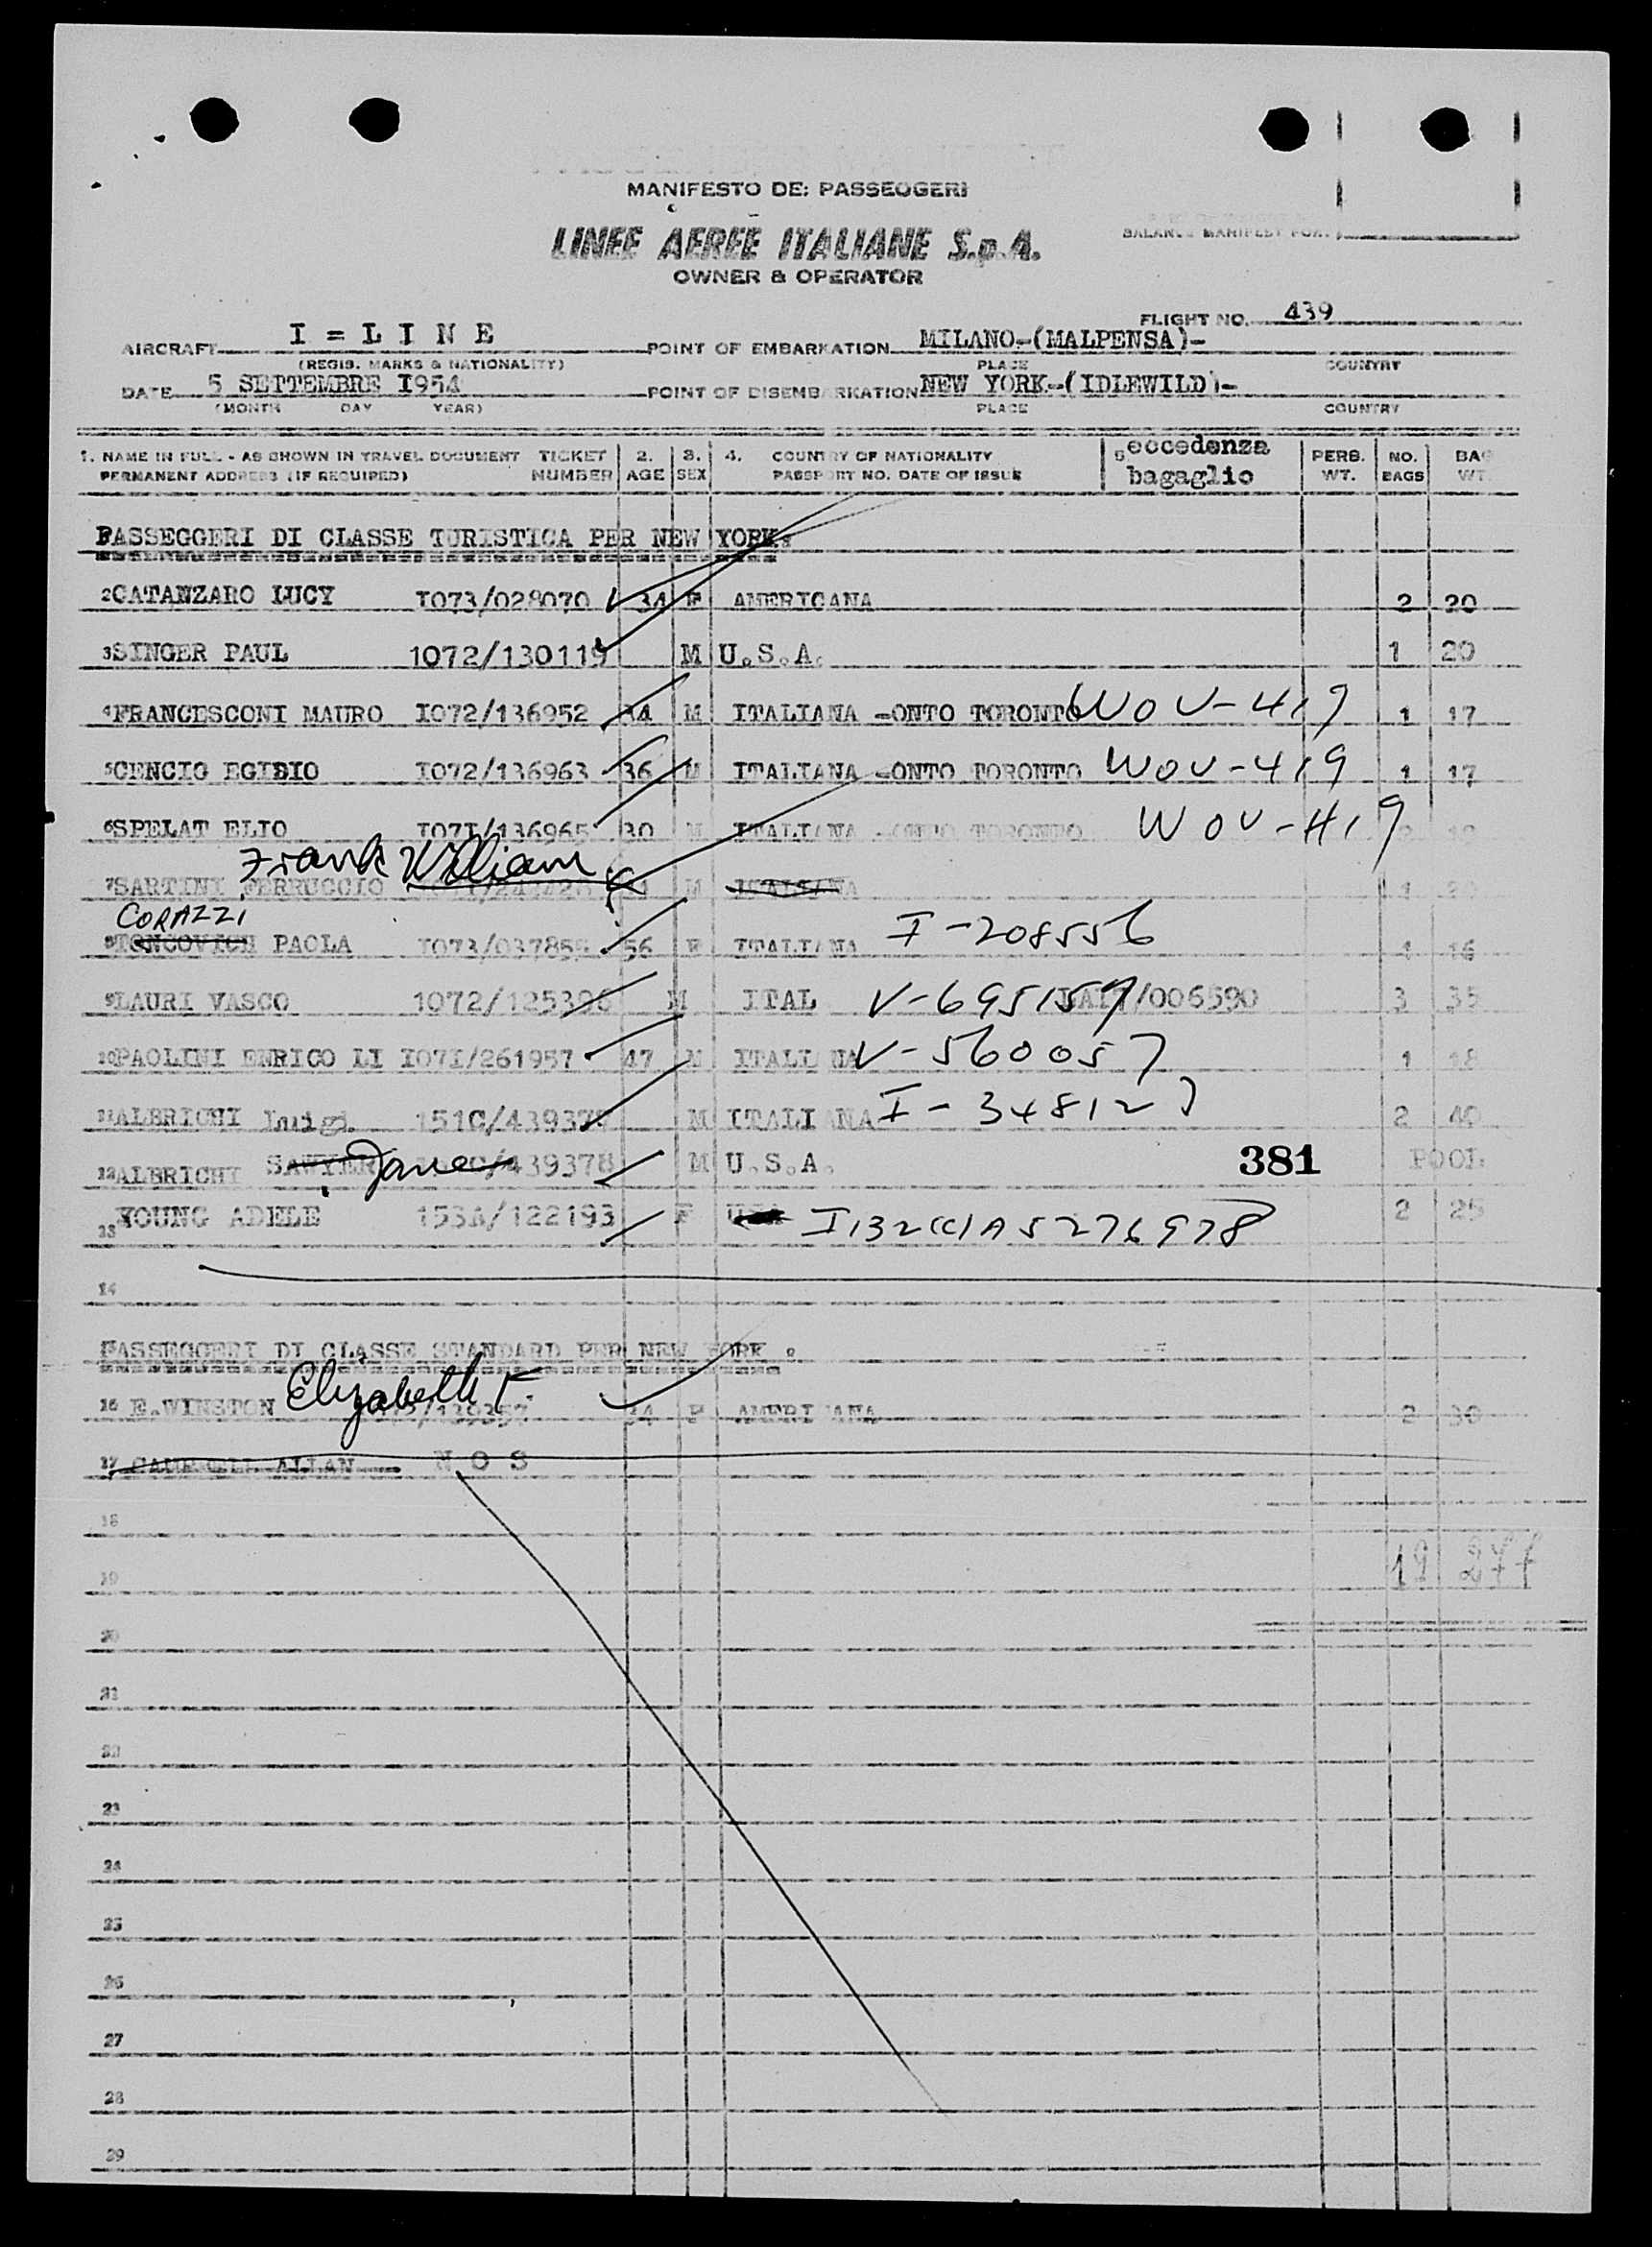 MANIFESTO DE: PASSEOGERI
LINEE AEREE ITALIANE S.p.A.
BALANCE MANIFEST FOR.
OWNER & OPERATOR
FLIGHT NO. 439
AIRCRAFT I = L I N E POINT OF EMBARKATION MILANO-(MALPENSA)-
(REGIS. MARKS & NATIONALITY) PLACE COUNTRY
DATE 5 SETTEMBRE I954 POINT OF DISEMBARKATION NEW YORK-(IDLEWILD)-
(MONTH DAY YEAR) PLACE COUNTRY
1. NAME IN FULL - AS SHOWN IN TRAVEL DOCUMENT TICKET 2. 3. 4. COUNTRY OF NATIONALITY 5. eccedenza PERS. NO. BAG
PERMANENT ADDRESS (IF REQUIRED) NUMBER AGE SEX PASSPORT NO. DATE OF ISSUE bagaglio WT. BAGS WT.
PASSEGGERI DI CLASSE TURISTICA PER NEW YORK.
2 CATANZARO LUCY I073/028070 34 F AMERICANA 2 20
3 SINGER PAUL 1072/130119 M U.S.A. 1 20
4 FRANCESCONI MAURO I072/136952 34 M ITALIANA -ONTO TORONTO WOV-419 1 17
5 CENCIO EGIDIO I072/136963 36 M ITALIANA -ONTO TORONTO WOV-419 1 17
6 SPELAT ELIO I07I/136965 30 M ITALIANA -ONTO TORONTO WOV-419
Frank William
7 SARTINI FERRUCCIO M ITALIANA 1 20
CORAZZI
8 TONCOVICH PAOLA I073/037855 56 F ITALIANA I-208556 1 16
9 LAURI VASCO 1072/125396 M ITAL V-695159 /006590 3 35
10 PAOLINI ENRICO LI I07I/261957 47 M ITALIANA V-560057 1 18
11 ALBRICHI Luigi 151C/439377 M ITALIANA I-348127 2 40
12 ALBRICHI SAWYER Jane /439378 M U.S.A. 381 POOL
13 YOUNG ADELE 153A/122193 F USA I132(c)A5276978 2 25
14
PASSEGGERI DI CLASSE STANDARD PER NEW YORK.
16 E.WINSTON Elizabeth F. /139357 34 F AMERICANA 2 30
17 ALLAN N O S
18
19 19 277
20
21
22
23
24
25
26
27
28
29